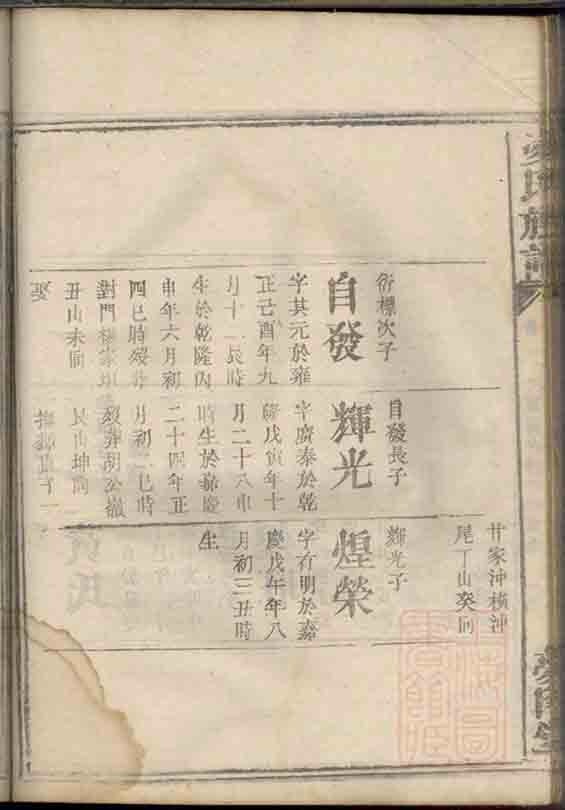 氏族譜
甘家沖橫沖
尾丁山癸向
衍標次子
自發
字其元於雍
正己酉年九
月十一辰時
生於乾隆丙
申年六月初
四巳時歿葬
對門
丑山未向
娶
自發長子
輝光
字廣泰於乾
隆戊寅年十
月二十八申
時生於嘉慶
二十四年正
月初二巳時
歿葬胡公嶺
艮山坤向
輝光子
煌榮
字有明於嘉
慶戊午年八
月初三丑時
生